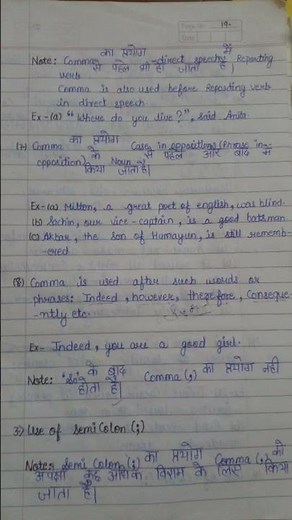 19.
Note: Comma का प्रयोग direct speech में Reporting
verb से पहले भी हो जाता है|
Comma is also used before Reporting verb
in direct speech
Ex-(a) "Where do you live?", said Anita
(7) Comma का प्रयोग Case in oppositions (Phrase in-
opposition) के Noun से पहले और बाद में
किया जाता है|
Ex-(a) Milton, a great poet of english, was blind
(b) Sachin, our vice-captain, is a good batsman
(c) Akbar, the son of Humayun, is still rememb-
-ered
(8) Comma is used after such words or
phrases: Indeed, however, therefore, Conseque-
-ntly etc.
Ex- Indeed, you are a good girl.
Note: "So" के बाद Comma (,) का प्रयोग नहीं
होता है|
3) Use of Semi Colon (;)
Note: Semi Colon (;) का प्रयोग Comma (,) की
अपेक्षा कुछ अधिक विराम के लिए किया
जाता है|